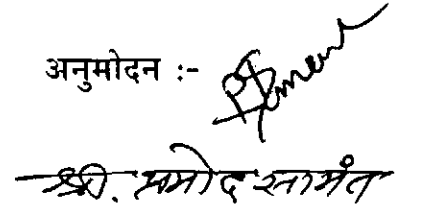 अनुमोदन :-
श्री. प्रमोद सामंत